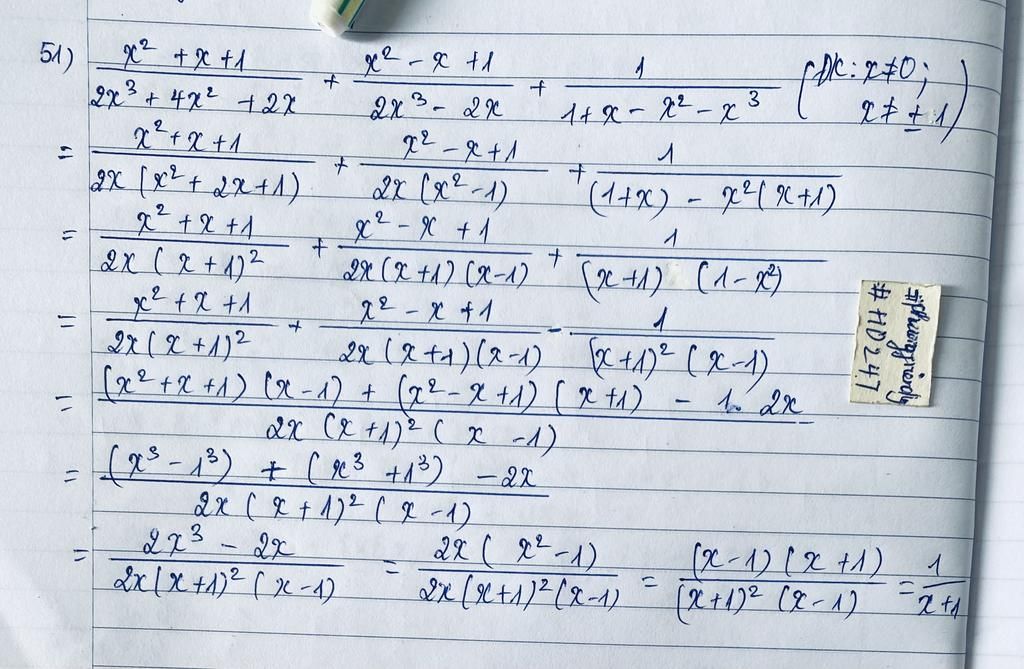 51) (x² + x + 1)/(2x³ + 4x² + 2x) + (x² - x + 1)/(2x³ - 2x) + 1/(1 + x - x² - x³) (ĐK: x ≠ 0; x ≠ ± 1)
= (x² + x + 1)/(2x (x² + 2x + 1)) + (x² - x + 1)/(2x (x² - 1)) + 1/((1+x) - x²(x+1))
= (x² + x + 1)/(2x (x+1)²) + (x² - x + 1)/(2x (x+1) (x-1)) + 1/((x+1) (1-x²))
= (x² + x + 1)/(2x (x+1)²) + (x² - x + 1)/(2x (x+1)(x-1)) - 1/((x+1)² (x-1))
= ((x² + x + 1) (x-1) + (x² - x + 1) (x+1) - 1. 2x)/(2x (x+1)² (x-1))
= ((x³ - 1³) + (x³ + 1³) - 2x)/(2x (x+1)² (x-1))
= (2x³ - 2x)/(2x(x+1)² (x-1)) = (2x (x² - 1))/(2x (x+1)² (x-1)) = ((x-1) (x+1))/((x+1)² (x-1)) = 1/(x+1)
#HD247